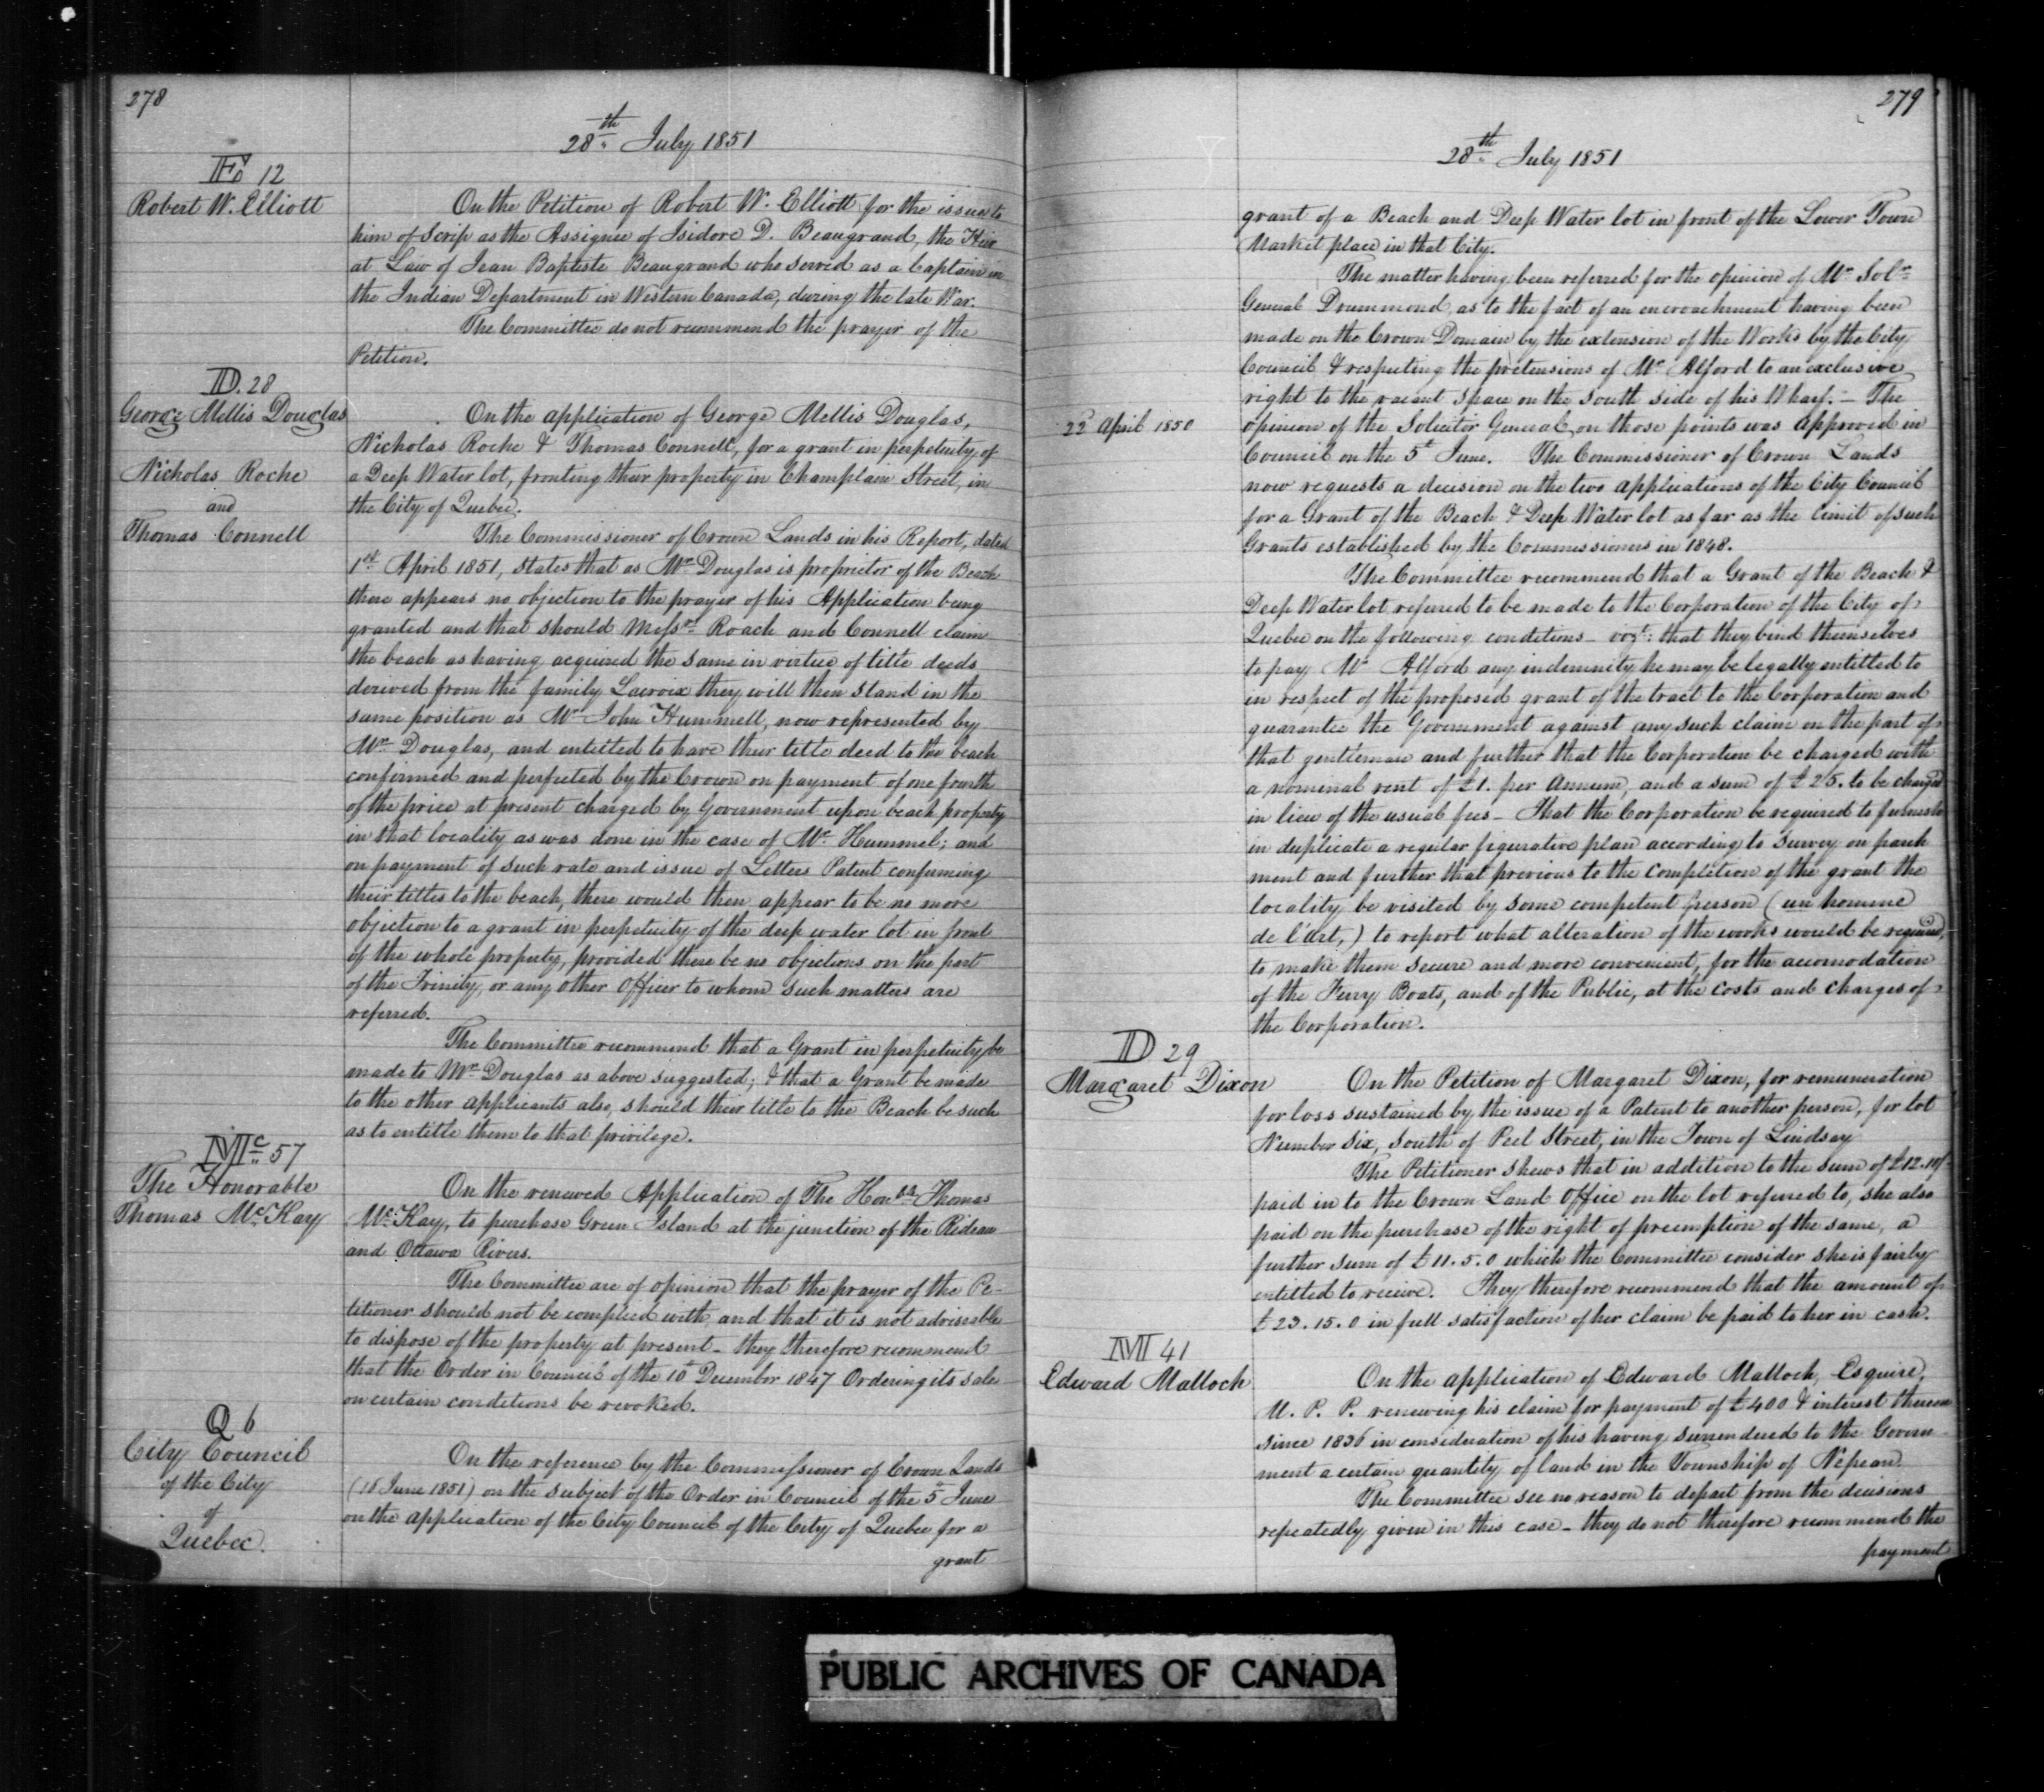 278
28th July 1851
E 12
Robert W. Elliott
On the Petition of Robert W. Elliott for the issue to
him of Scrip as the Assignee of Isidore D. Beaugrand, the Heir
at Law of Jean Baptiste Beaugrand who served as a Captain in
the Indian Department in Western Canada, during the late War.
The Committee do not recommend the prayer of the
Petition.
D. 28
George Mellis Douglas
Nicholas Roche
and
Thomas Connell
On the application of George Mellis Douglas,
Nicholas Roche & Thomas Connell, for a grant in perpetuity of
a Deep Water lot, fronting their property in Champlain Street, in
the City of Quebec.
The Commissioner of Crown Lands in his Report, dated
1st April 1851, states that as Mr Douglas is proprietor of the Beach
there appears no objection to the prayer of his Application being
granted and that should Messrs Roach and Connell claim
the beach as having acquired the same in virtue of title deeds
derived from the family Lacroix they will then stand in the
same position as Mr John Hummell, now represented by
Mr Douglas, and entitled to have their title deed to the beach
confirmed and perfected by the Crown on payment of one fourth
of the price at present charged by Government upon beach property
in that locality as was done in the case of Mr Hummel; and
on payment of such rate and issue of Letters Patent confirming
their titles to the beach, there would then appear to be no more
objection to a grant in perpetuity of the deep water lot in front
of the whole property, provided there be no objections on the part
of the Trinity or any other Officer to whom such matters are
referred.
The Committee recommend that a Grant in perpetuity be
made to Mr Douglas as above suggested; & that a Grant be made
to the other applicants also, should their title to the Beach be such
as to entitle them to that privilege.
Mc 57
The Honorable
Thomas McKay
On the renewed Application of The Honble Thomas
McKay, to purchase Green Island at the junction of the Rideau
and Ottawa Rivers.
The Committee are of opinion that the prayer of the Pe-
titioner should not be complied with and that it is not adviseable
to dispose of the property at present - they therefore recommend
that the Order in Council of the 10th December 1847 Ordering its sale
on certain conditions be revoked.
Q 6
City Council
of the City
of
Quebec.
On the reference by the Commissioner of Crown Lands
(18 June 1851) on the subject of the Order in Council of the 5th June
on the application of the City Council of the City of Quebec for a
grant
279
28th July 1851
grant of a Beach and Deep Water lot in front of the Lower Town
Market place in that City.
The matter having been referred for the opinion of Mr Solr
General Drummond, as to the fact of an encroachment having been
made on the Crown Domain by the extension of the Works by the City
Council & respecting the pretensions of Mr Alford to an exclusive
right to the vacant space on the south side of his Wharf. - The
22d April 1850
opinion of the Solicitor General on those points was approved in
Council on the 5th June. The Commissioner of Crown Lands
now requests a decision on the two applications of the City Council
for a Grant of the Beach & Deep Water lot as far as the limit of such
Grants established by the Commissioners in 1848.
The Committee recommend that a Grant of the Beach &
Deep Water lot referred to be made to the Corporation of the City of
Quebec on the following conditions - vizt: that they bind themselves
to pay Mr Alford any indemnity he may be legally entitled to
in respect of the proposed grant of the tract to the Corporation and
guarantee the Government against any such claim on the part of
that gentleman and further that the Corporation be charged with
a nominal rent of £1. per Annum, and a sum of £25. to be charged
in lieu of the usual fees - That the Corporation be required to furnish
in duplicate a regular figurative plan according to survey on parch
ment and further that previous to the completion of the grant the
locality be visited by some competent person (un homme
de l'art,) to report what alteration of the works would be required,
to make them secure and more convenient, for the accomodation
of the Ferry Boats, and of the Public, at the costs and charges of
the Corporation.
D 29
Margaret Dixon
On the Petition of Margaret Dixon, for remuneration
for loss sustained by the issue of a Patent to another person, for lot
Number Six, South of Peel Street, in the Town of Lindsay
The Petitioner shews that in addition to the sum of £12.10/-
paid in to the Crown Land Office on the lot referred to, she also
paid on the purchase of the right of preemption of the same, a
further sum of £11.5.0 which the Committee consider she is fairly
entitled to receive. They therefore recommend that the amount of
£23.15.0 in full satisfaction of her claim be paid to her in cash.
M 41
Edward Malloch
On the application of Edward Malloch, Esquire,
M. P. P. renewing his claim for payment of £400 & interest thereon
since 1836 in consideration of his having surrendered to the Govern-
ment a certain quantity of land in the Township of Nepean.
The Committee see no reason to depart from the decisions
repeatedly given in this case - they do not therefore recommend the
payment
PUBLIC ARCHIVES OF CANADA